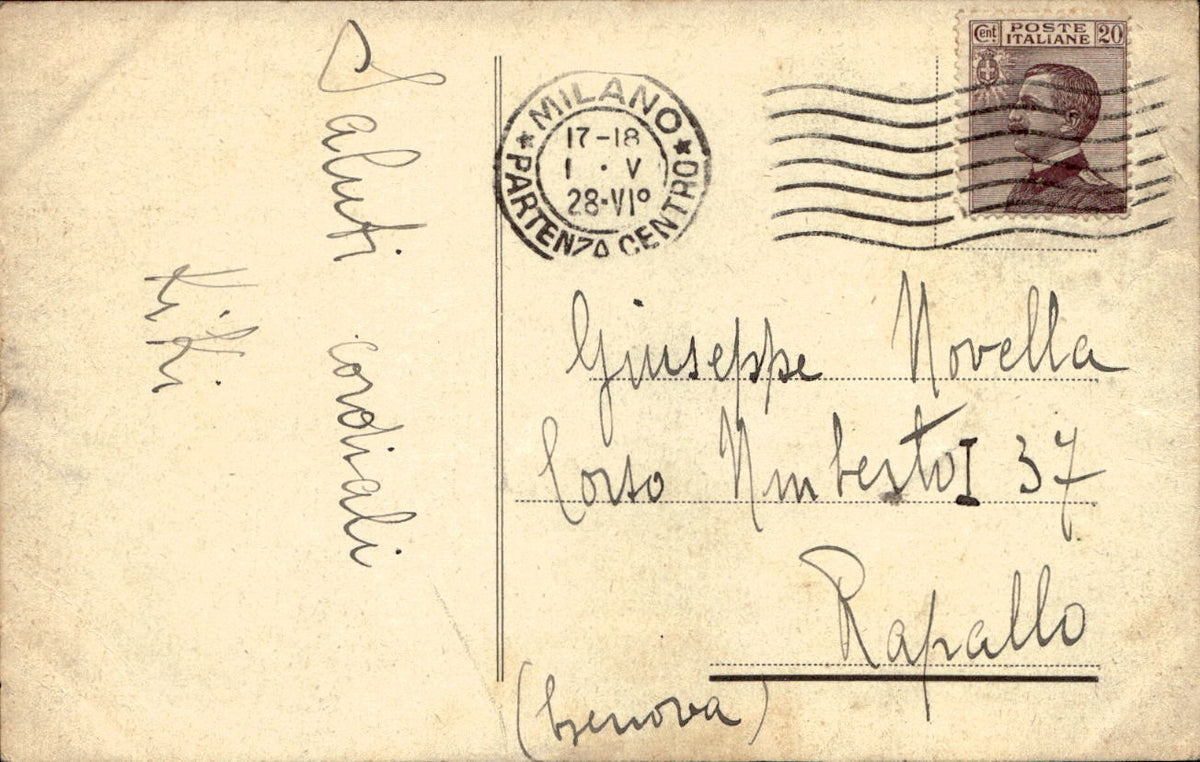 Saluti cordiali
MILANO
PARTENZA CENTRO
17-18
1 · V
28·VI°
Cent.
POSTE
ITALIANE
20
Giuseppe Novella
Corso Umberto I 37
Rapallo
(Genova)